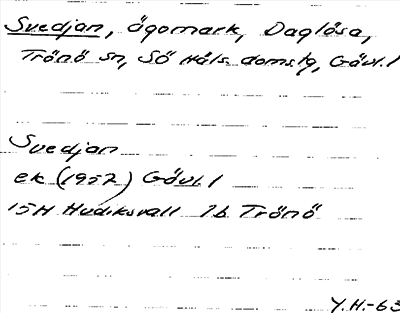 Svedjan, ägomark, Daglösa,
Trönö sn, Sö Häls. domstg, Gävl. l
Svedjan
ek (1952) Gävl. l
15H Hudiksvall 1b Trönö
Y.H.-63